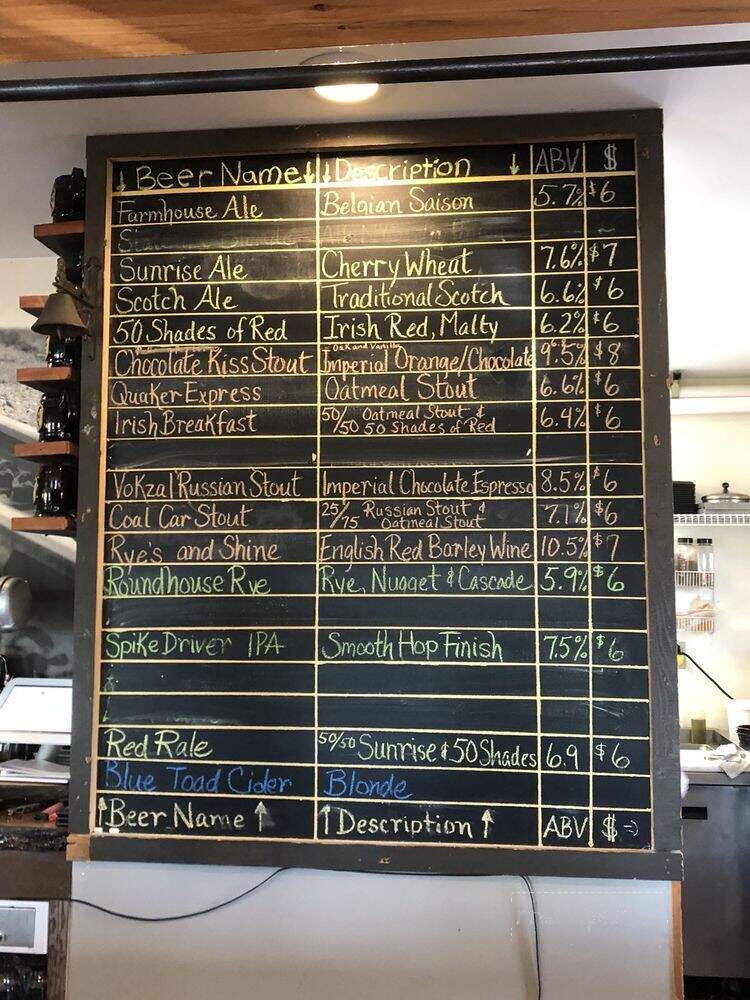 ↓ Beer Name ↓ ↓ Description ↓ ABV $
Farmhouse Ale Belgian Saison 5.7% $6
Sunrise Ale Cherry Wheat 7.6% $7
Scotch Ale Traditional Scotch 6.6% $6
50 Shades of Red Irish Red, Malty 6.2% $6
Oak and Vanilla
Chocolate Kiss Stout Imperial Orange/Chocolate 9.5% $8
Quaker Express Oatmeal Stout 6.6% $6
Irish Breakfast 50/50 Oatmeal Stout & 50 Shades of Red 6.4% $6
Vokzal Russian Stout Imperial Chocolate Espresso 8.5% $6
Coal Car Stout 25/75 Russian Stout & Oatmeal Stout 7.1% $6
Rye's and Shine English Red Barley Wine 10.5% $7
Roundhouse Rye Rye, Nugget & Cascade 5.9% $6
Spike Driver IPA Smooth Hop Finish 7.5% $6
Red Rale 50/50 Sunrise & 50 Shades 6.9 $6
Blue Toad Cider Blonde
↑ Beer Name ↑ ↑ Description ↑ ABV $ =)